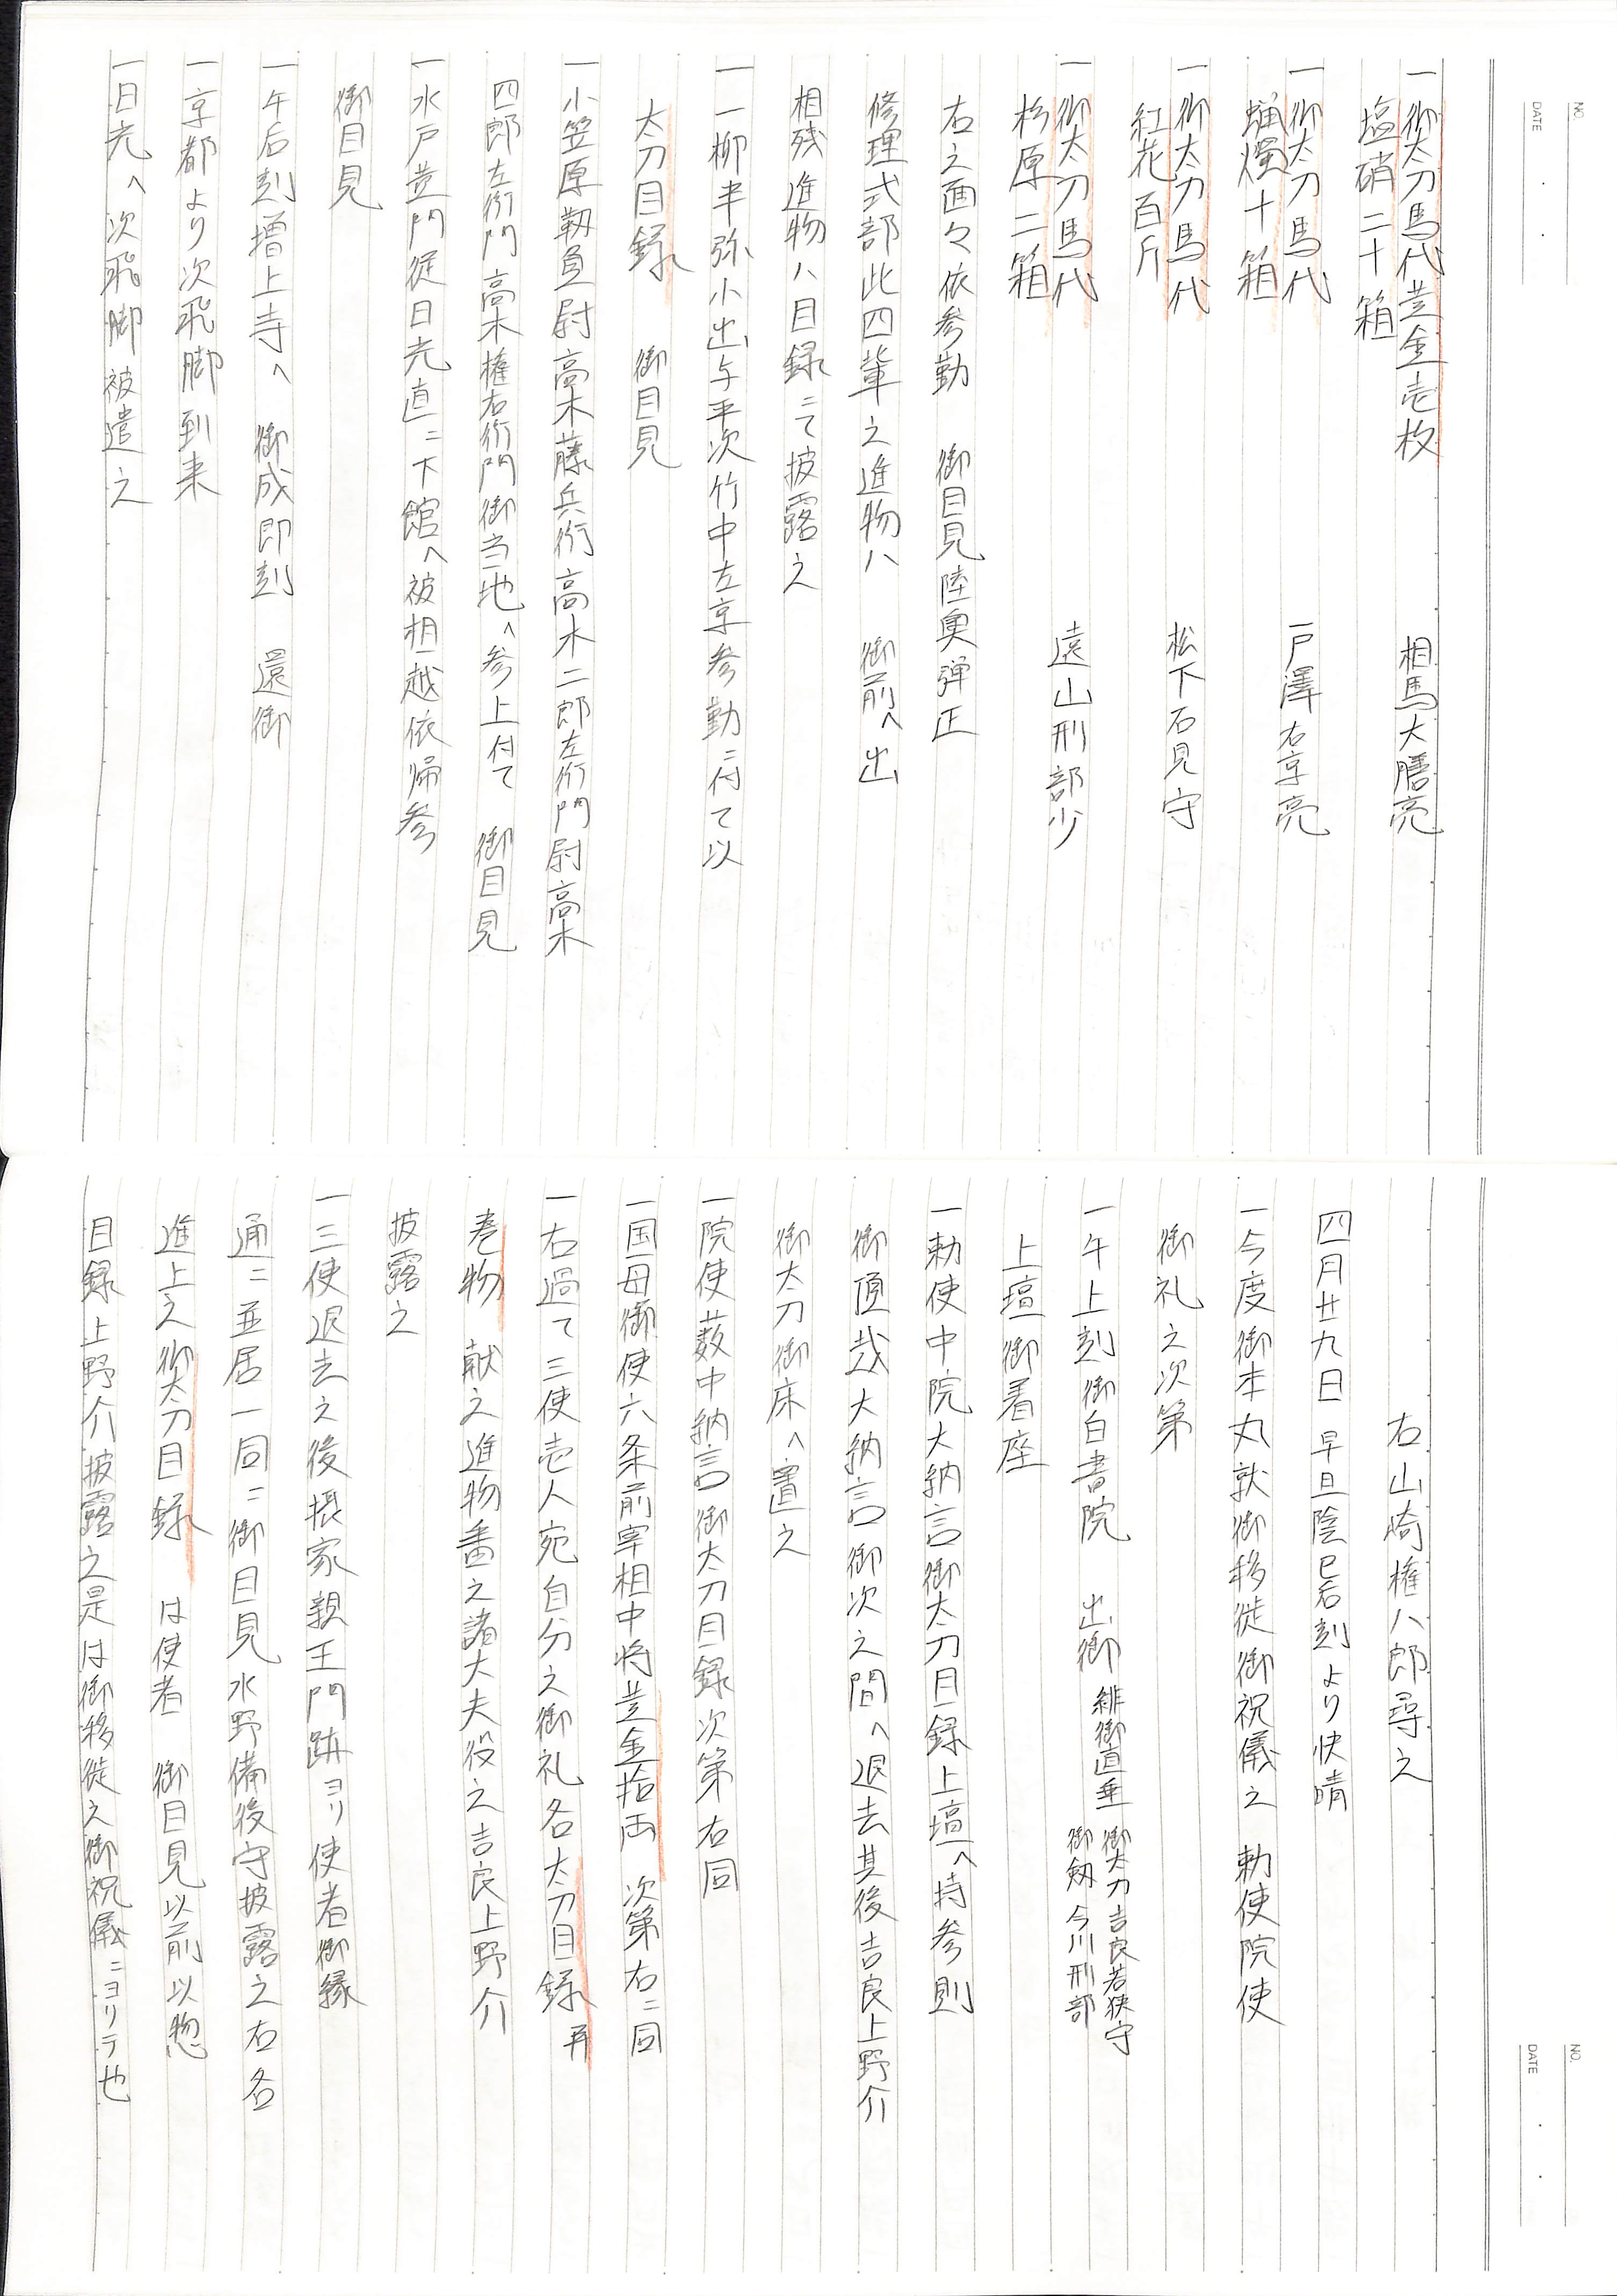 NO.
DATE
一御太刀馬代黄金壱枚 相馬大膳亮
塩硝二十箱
一御太刀馬代 戸澤右京亮
蝋燭十箱
一御太刀馬代 松下石見守
紅花百斤
一御太刀馬代 遠山刑部少
杉原二箱
右之面々依参勤 御目見陸奥弾正
修理式部此四輩之進物ハ 御前へ出
相残進物ハ目録ニて披露之
一一柳半弥小出与平次竹中左京参勤ニ付て以
太刀目録 御目見
一小笠原靱負尉高木藤兵衛高木二郎左衛門尉高木
四郎左衛門高木権右衛門御当地へ参上付て 御目見
一水戸黄門従日光直ニ下館へ被相越依帰参
御目見
一午后刻増上寺へ 御成即刻 還御
一京都より次飛脚到来
一日光へ次飛脚被遣之
NO.
DATE
右山崎権八郎尋之
四月廿九日 早旦陰巳后刻より快晴
一今度御本丸就御移徙御祝儀之 勅使院使
御礼之次第
一午上刻御白書院 出御 緋御直垂 御太刀吉良若狭守
御剱 今川刑部
上壇御着座
一勅使中院大納言御太刀目録上壇へ持参則
御頂戴大納言御次之間へ退去其後吉良上野介
御太刀御床へ置之
一院使薮中納言御太刀目録次第右同
一国母御使六条前宰相中将黄金拾両 次第右ニ同
一右過て三使壱人宛自分之御礼各太刀目録再
巻物 献之進物番之諸大夫役之吉良上野介
披露之
一三使退去之後摂家親王門跡ヨリ使者御縁
通ニ並居一同ニ御目見水野備後守披露之右各
進上之御太刀目録 は使者 御目見以前以惣
目録上野介披露之是は御移徙之御祝儀ニヨリテ也